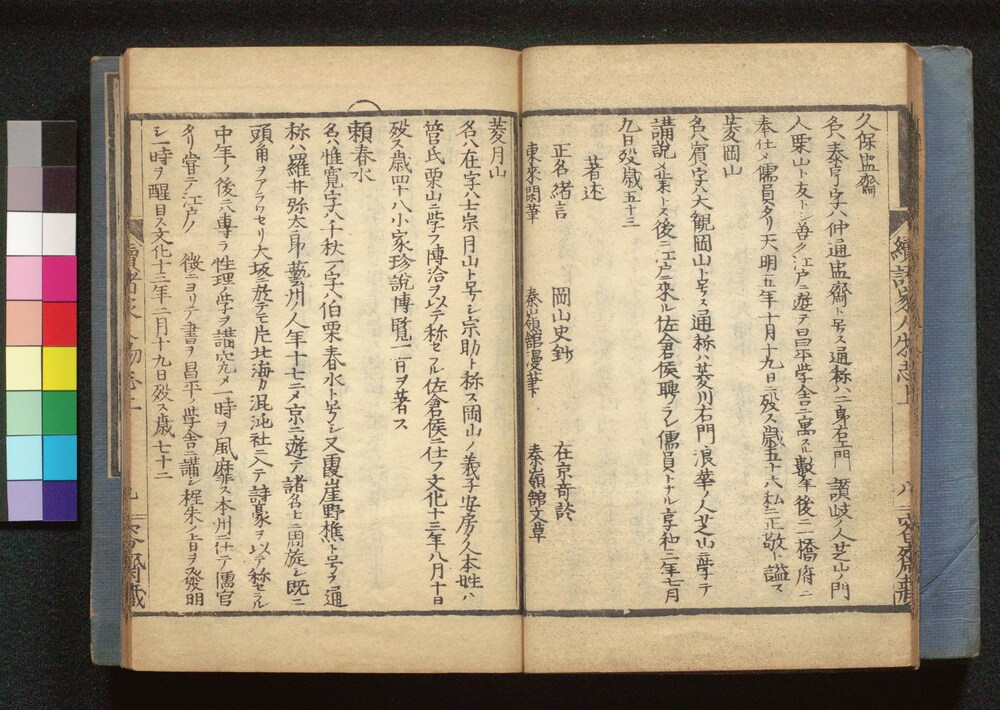 久保盅齋
名ハ泰亨字ハ仲通盅齋ト号ス通称ハ二身右エ門讃岐ノ人芝山ノ門
人栗山ト友トシ善ク江戸ニ遊ヲ昌平学舎ニ寓スル數年後ニ一橋府ニ
奉仕メ儒員タリ天明五年十月十九日ニ歿ス歳五十六私ニ正敬ト謚ス
菱岡山
名ハ賓字ハ大觀岡山ト号ス通称ハ菱川右門浪華ノ人芝山ニ學テ
講説業トス後ニ江戸ニ來ル佐倉侯聘メ儒員トナル享和三年七月
九日歿歳五十三
著述
正名緒言 岡山史鈔 在京奇談
東來閑筆 秦嶺館漫筆 秦嶺館文草
菱月山
名ハ在字ハ士宗月山ト号シ宗助ト称ス岡山ノ義子安房ノ人本姓ハ
菅氏栗山ニ學フ博洽ヲ以テ称セラル佐倉侯ニ仕フ文化十三年八月十日
歿ス歳四十八小家珍説博覧一日ヲ著ス
頼春水
名ハ惟寛字ハ千秋一字ハ伯栗春水ト号シ又霞崖野樵ト号ヲ通
称ハ羅井弥太郎藝州ノ人年十七ニメ京ニ遊テ諸名士ニ周旋シ既ニ
頭角ヲアラワセリ大坂ニ於テモ片北海カ混沌社ニ入テ詩豪ヲ以テ称セラル
中年ノ後ニハ專ラ性理ノ學ヲ講究メ一時ヲ風靡ス本州ニ仕テ儒官
タリ甞テ江戸ノ徴ニヨリテ書ヲ昌平ノ學舎ニ講シ程朱ノ旨ヲ發明
シ一時ヲ醒目ス文化十三年二月十九日歿ス歳七十二